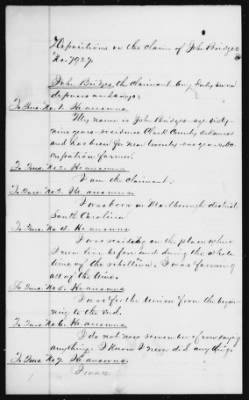 Depositions in the claim of John Bridges
No. 7927.
John Bridges, the claimant, being duly sworn
deposes and says:
To Ques. No. 1. He answers
My name is John Bridges age sixty
nine years residence Clark County Arkansas
and has been for near twenty six years oc-
cupation farmer.
To Ques. No. 2. He answers
I am the claimant.
To Ques. No. 3. He answers
I was born in Marlborough district
South Carolina
To Ques. No. 4. He answers
I was residing on the place where
I now live before and during the whole
time of the rebellion. I was farming
all of the time.
To Ques. No. 5. He answers
I was for the union from the begin
ning to the end.
To Ques. No. 6. He answers
I do not now remember of ever saying
anything. I know I never did anything.
To Ques. No. 7. He answers
I was